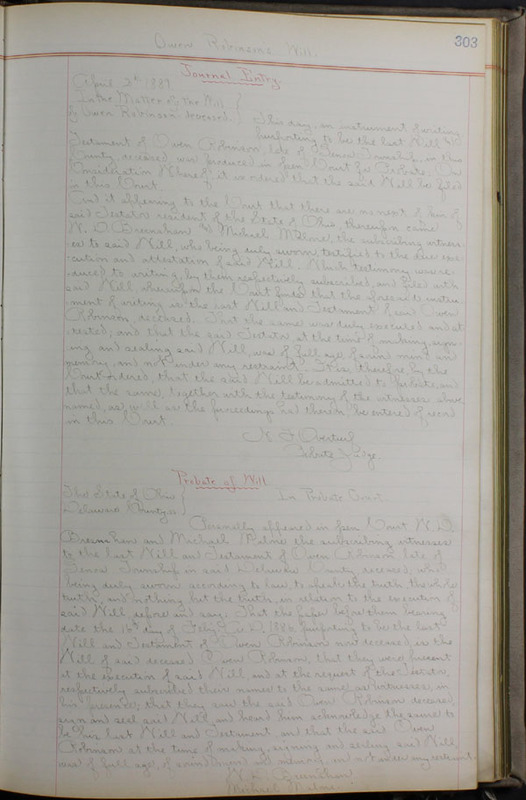 303
Owen Robinson's Will.
Journal Entry.
April 2d 1887
In the Matter of the Will
of Owen Robinson deceased. } This day, an instrument of writing
purporting to be the last Will and
Testament of Owen Robinson late of Genoa Township, in this
County, deceased, was produced in open Court for Probate. On
Consideration Whereof, it is ordered that the said Will be filed
in this Court.
And it appearing to the Court that there are no next of kin of
said Testator resident of the State of Ohio, thereupon came
W. D. Bresnahen and Michael Milne, the subscribing witness-
es to said Will, who being duly sworn, testified to the due exe-
cution and attestation of said Will. Which testimony was re-
duced to writing, by them respectively subscribed, and filed with
said Will whereupon the Court finds that the aforesaid instru-
ment of writing is the last Will and Testament of said Owen
Robinson, deceased. That the same was duly executed and at-
tested, and that the said Testator at the time of making, sign-
ing and sealing said Will, was of full age, of sound mind and
memory, and not under any restraint. It is therefore by the
Court ordered, that the said Will be admitted to Probate, and
that the same, together with the testimony of the witnesses above
named, as well as the proceedings had therein be entered of record
in this Court.
Probate Judge.
Probate of Will
The State of Ohio
Delaware County, ss } In Probate Court.
Personally appeared in open Court W. D.
Bresnahen and Michael Milne the subscribing witnesses
to the last Will and Testament of Owen Robinson late of
Genoa Township in said Delaware County, deceased, who
being duly sworn according to law, to speak the truth, the whole
truth, and nothing but the truth, in relation to the execution of
said Will, depose and say: That the paper before them bearing
date the day of Feby. A. D. 1886, purporting to be the last
Will and Testament of Owen Robinson now deceased, is the
Will of said deceased Owen Robinson, that they were present
at the execution of said Will and at the request of the Testator,
respectively subscribed their names to the same as witnesses in
his presence, that they saw the said Owen Robinson deceased,
sign and seal said Will, and heard him acknowledge the same to
be his last Will and Testament, and that the said Owen
Robinson at the time of making, signing and sealing said Will,
was of full age, of sound mind and memory, and not under any restraint.
W. D. Bresnahan
Michael Milne